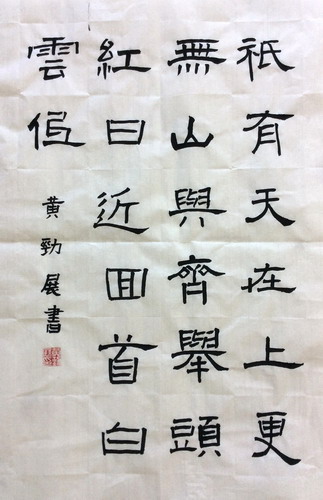 祇有天在上更
無山與齊舉頭
紅日近回首白
雲低
黄勁展書